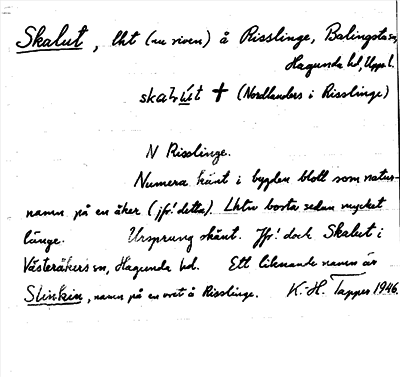 Skalut, lht (nu riven) å Risslinge, Balingsta sn,
Hagunda hd, Uppl.
+ (Nordlanders i Risslinge)
N Risslinge.
Numera känt i bygden blott som natur-
namn på en åker (jfr detta). Lht borta sedan mycket
länge. Ursprung okänt. Jfr dock Skalut i
Västeråkers sn, Hagunda hd. Ett liknande namn är
Slinkin, namn på en vret å Risslinge. K.-H. Tapper 1946.